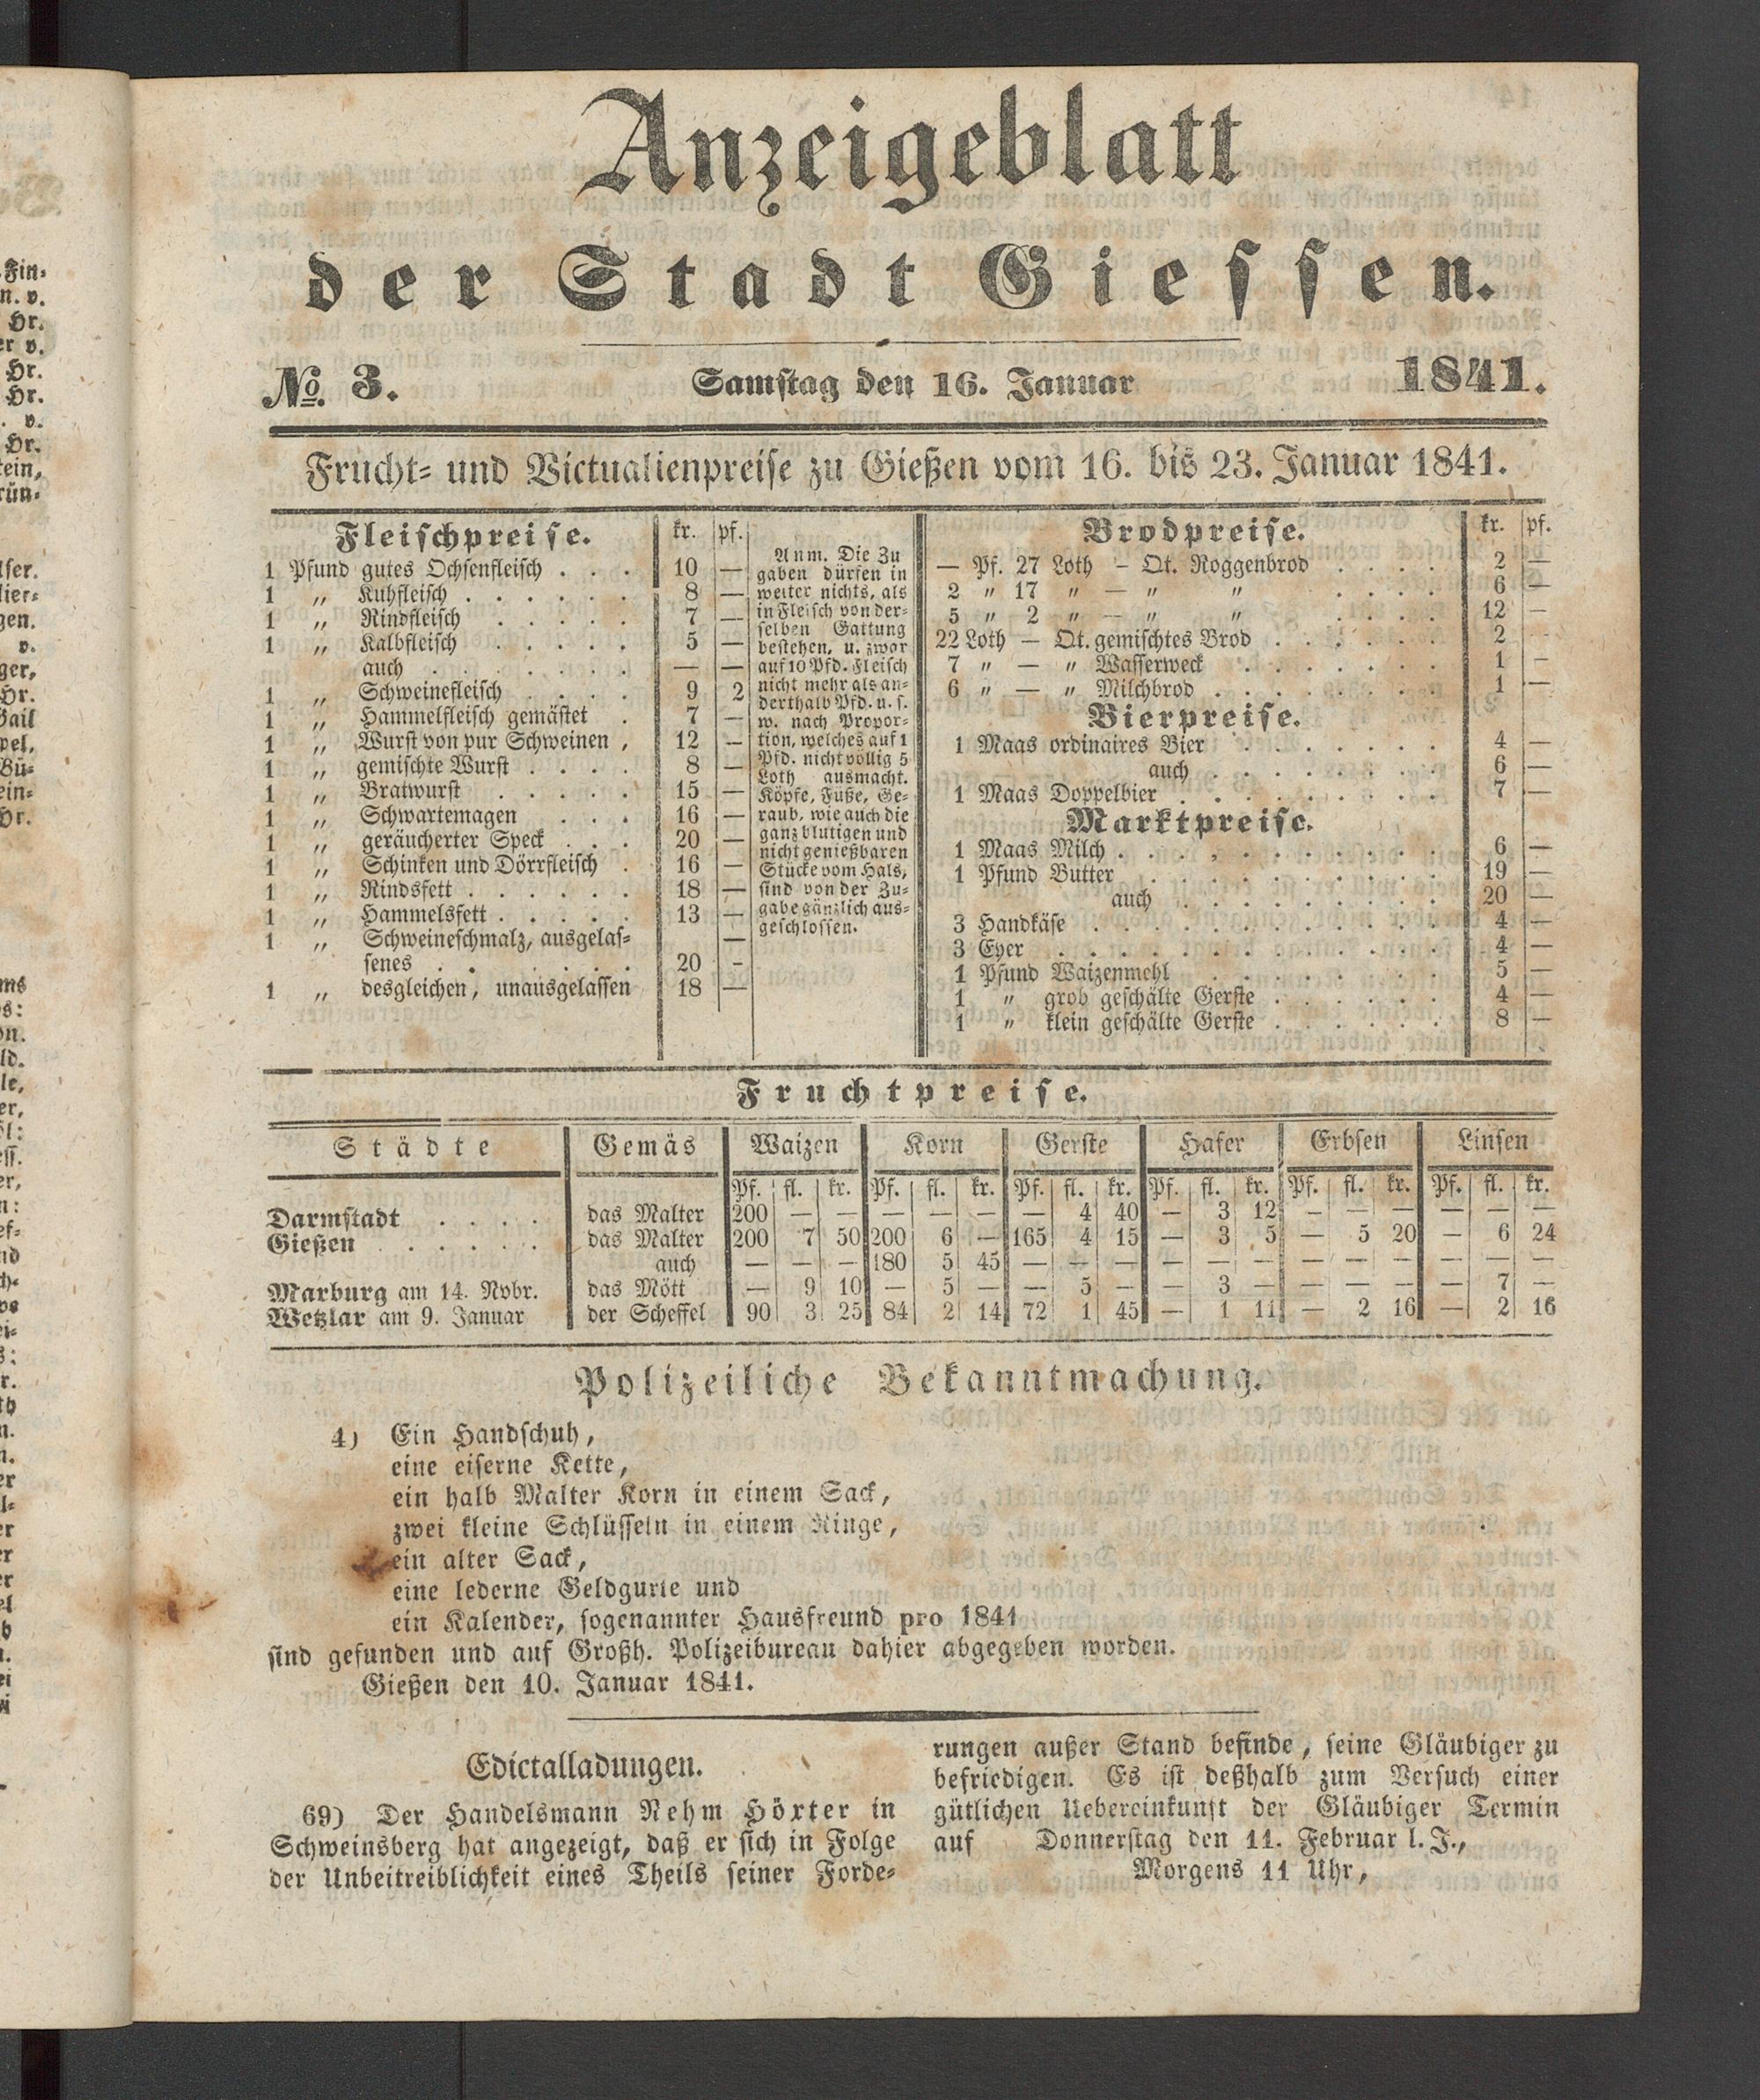 Anzeigeblatt
der Stadt Giessen.
No. 3. Samstag den 16. Januar 1841.
Frucht= und Victualienpreise zu Gießen vom 16. bis 23. Januar 1841.
Fleischpreise. kr. pf.
1 Pfund gutes Ochsenfleisch . . . 10 —
1 „ Kuhfleisch . . . . . . 8 —
1 „ Rindfleisch . . . . . 7 —
1 „ Kalbfleisch . . . . . 5 —
auch . . . . . . . — —
1 „ Schweinefleisch . . . . 9 2
1 „ Hammelfleisch gemästet . 7 —
1 „ Wurst von pur Schweinen , 12 —
1 „ gemischte Wurst . . . . 8 —
1 „ Bratwurst . . . . . 15 —
1 „ Schwartemagen . . . 16 —
1 „ geräucherter Speck . . . 20 —
1 „ Schinken und Dörrfleisch . 16 —
1 „ Rindsfett . . . . . . 18 —
1 „ Hammelsfett . . . . . 13 —
1 „ Schweineschmalz, ausgelas= —
senes . . . . . . 20 -
1 „ desgleichen, unausgelassen 18 —
Anm. Die Zu
gaben dürfen in
weiter nichts, als
in Fleisch von der=
selben Gattung
bestehen, u. zwar
auf 10 Pfd. Fleisch
nicht mehr als an=
derthalb Pfd. u. s.
w. nach Propor=
tion, welches auf 1
Pfd. nicht völlig 5
Loth ausmacht.
Köpfe, Füße, Ge=
raub, wie auch die
ganz blutigen und
nicht genießbaren
Stücke vom Hals,
sind von der Zu=
gabe gänzlich aus=
geschlossen.
Brodpreise. kr. pf.
— Pf. 27 Loth — Qt. Roggenbrod . . . . 2 —
2 „ 17 „ — „ „ . . . . 6 —
5 „ 2 „ — „ „ . . . . 12 —
22 Loth — Qt. gemischtes Brod . . . . . . 2 —
7 „ — „ Wasserweck . . . . . . . 1 —
6 „ — „ Milchbrod . . . . . . . 1 —
Bierpreise.
1 Maas ordinaires Bier . . . . . . . 4 —
auch . . . . . . . 6 —
1 Maas Doppelbier . . . . . . . . 7 —
Marktpreise.
1 Maas Milch . . . . . . . . . . 6 —
1 Pfund Butter . . . . . . . . . 19 —
auch . . . . . . . . 20 —
3 Handkäse . . . . . . . . . . . 4 —
3 Eyer . . . . . . . . . . . . 4 —
1 Pfund Waizenmehl . . . . . . . 5 —
1 „ grob geschälte Gerste . . . . . . 4 —
1 „ klein geschälte Gerste . . . . . . 8 —
Fruchtpreise.
Städte Gemäs Waizen Korn Gerste Hafer Erbsen Linsen
Pf. fl. kr. Pf. fl. kr. Pf. fl. kr. Pf. fl. kr. Pf. fl. kr. Pf. fl. kr.
Darmstadt . . . . das Malter 200 — — — — — — 4 40 — 3 12 — — — — — —
Gießen . . . . . . das Malter 200 7 50 200 6 — 165 4 15 — 3 5 — 5 20 — 6 24
auch — — — 180 5 45 — — — — — — — — — — — —
Marburg am 14. Nvbr. das Mött — 9 10 — 5 — — 5 — — 3 — — — — — 7 —
Wetzlar am 9. Januar der Scheffel 90 3 25 84 2 14 72 1 45 — 1 11 — 2 16 — 2 16
Polizeiliche Bekanntmachung.
4) Ein Handschuh,
eine eiserne Kette,
ein halb Malter Korn in einem Sack,
zwei kleine Schlüsseln in einem Ringe,
ein alter Sack,
eine lederne Geldgurte und
ein Kalender, sogenannter Hausfreund pro 1841
sind gefunden und auf Großh. Polizeibureau dahier abgegeben worden.
Gießen den 10. Januar 1841.
Edictalladungen.
69) Der Handelsmann Nehm Höxter in
Schweinsberg hat angezeigt, daß er sich in Folge
der Unbeitreiblichkeit eines Theils seiner Forde=
rungen außer Stand befinde, seine Gläubiger zu
befriedigen. Es ist deßhalb zum Versuch einer
gütlichen Uebereinkunft der Gläubiger Termin
auf Donnerstag den 11. Februar l. J.,
Morgens 11 Uhr,